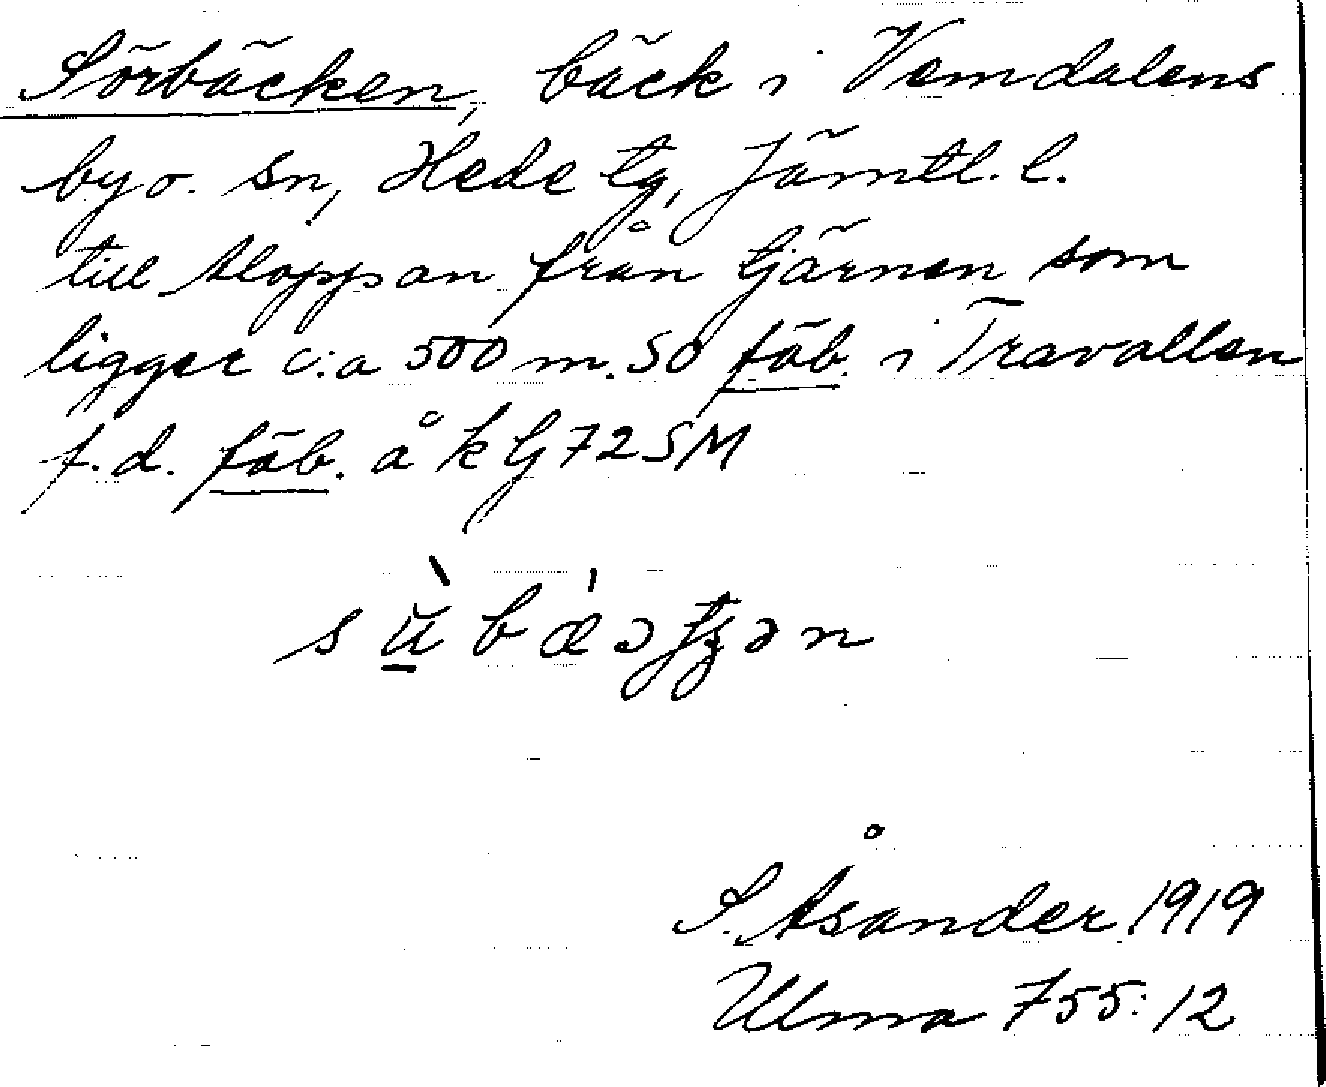 Sörbäcken, bäck i Vemdalens
by o. sn, Hede tg, Jämtl. l.
till Aloppan från tjärnen som
ligger c:a 500 m. SO fäb. i Travallen
f.d. fäb. å k bj 72 SM
S. Åsander 1919
Ulma 755:12